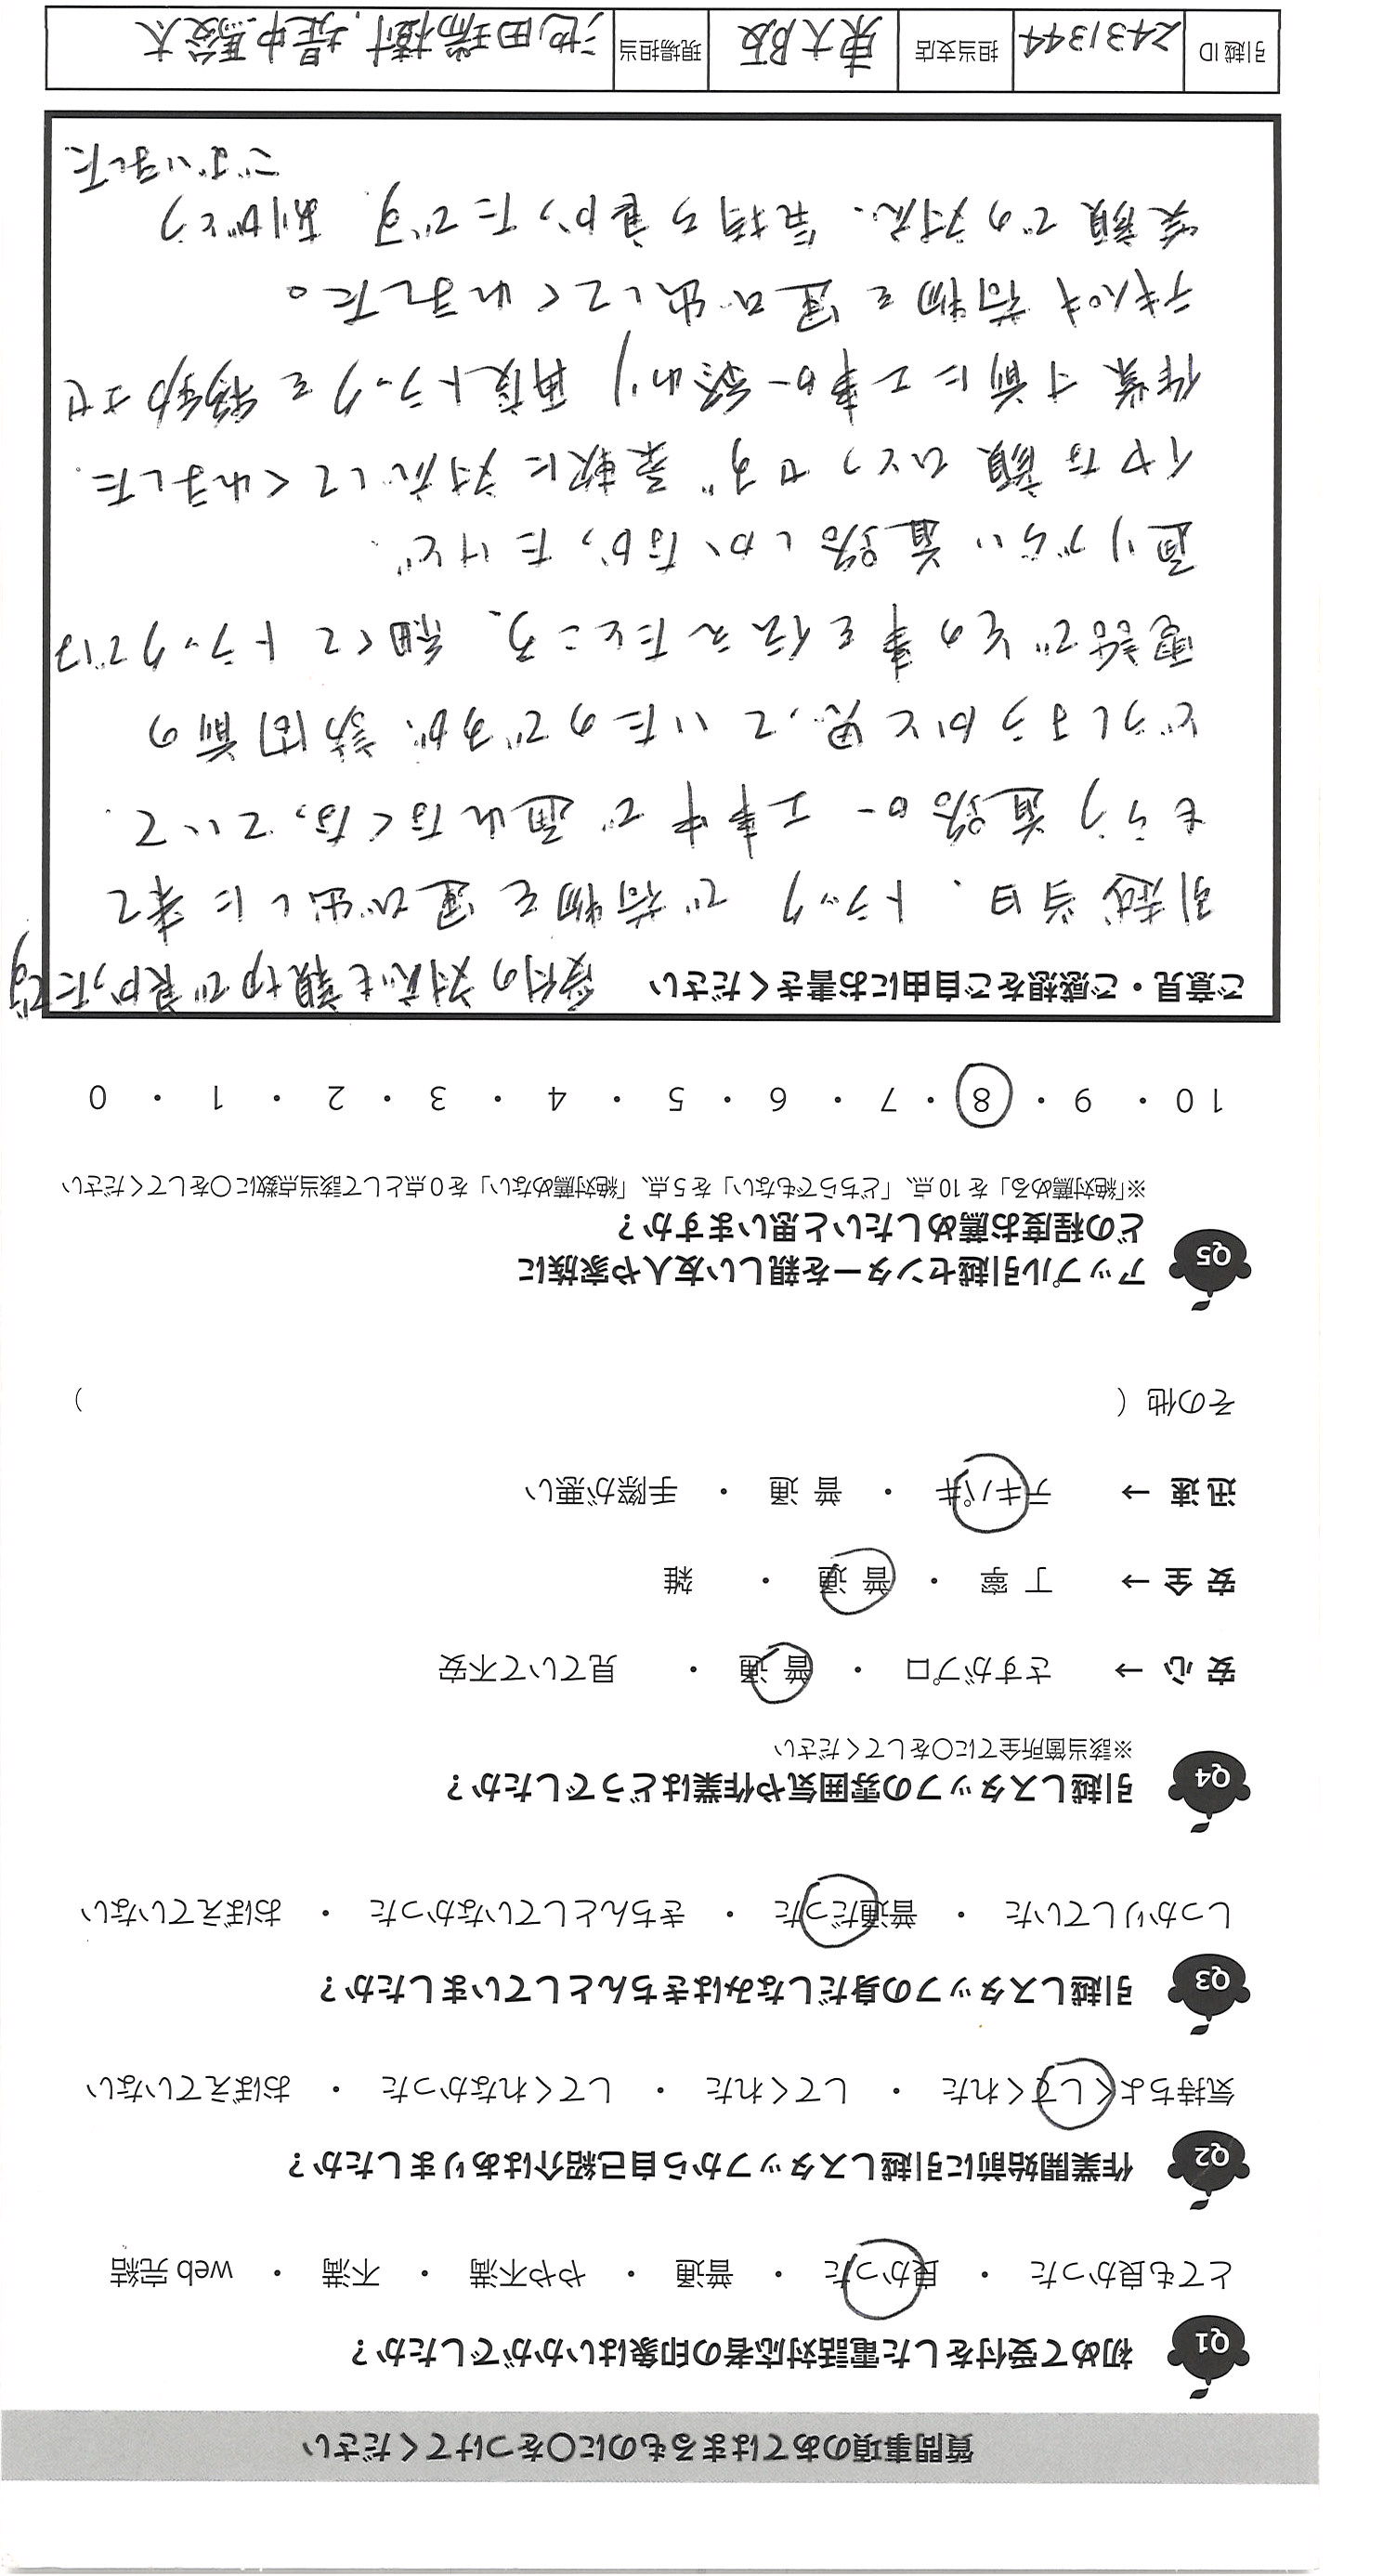 質問事項のあてはまるものに〇をつけてください
Q1 初めて受付をした電話対応者の印象はいかがでしたか？
とても良かった ・ 良かった ・ 普通 ・ やや不満 ・ 不満 ・ web 完結
Q2 作業開始前に引越しスタッフから自己紹介はありましたか？
気持ちよくしてくれた ・ してくれた ・ してくれなかった ・ おぼえていない
Q3 引越しスタッフの身だしなみはきちんとしていましたか？
しっかりしていた ・ 普通だった ・ きちんとしていなかった ・ おぼえていない
Q4 引越しスタッフの雰囲気や作業はどうでしたか？
※該当箇所全てに〇をしてください
安 心 → さすがプロ ・ 普 通 ・ 見ていて不安
安 全 → 丁 寧 ・ 普 通 ・ 雑
迅 速 → テキパキ ・ 普 通 ・ 手際が悪い
その他（ ）
Q5 アップル引越センターを親しい友人や家族に
どの程度お薦めしたいと思いますか？
※「絶対薦める」を 10 点、「どちらでもない」を 5 点、「絶対薦めない」を 0 点として該当点数に〇をしてください
10 ・ 9 ・ 8 ・ 7 ・ 6 ・ 5 ・ 4 ・ 3 ・ 2 ・ 1 ・ 0
ご意見・ご感想をご自由にお書きください 受付の対応も親切で良かったです
引越当日、トラックで荷物を運び出しに来て
もらう道路が工事中で通れなくなっていて
どうしようかと思っていたのですが、訪問前の
電話でその事を伝えたところ、細くてトラックでは
通りづらい道路しかなかったけど
イヤな顔ひとつせず柔軟に対応してくれました。
作業寸前に工事が終わり再度トラックを移動させ
テキパキ荷物を運び出してくれました。
笑顔での対応、気持ち良かったです。ありがとう
ございました
引越 ID 2431344 担当支店 東大阪 現場担当 池田瑞樹, 堤中駿太